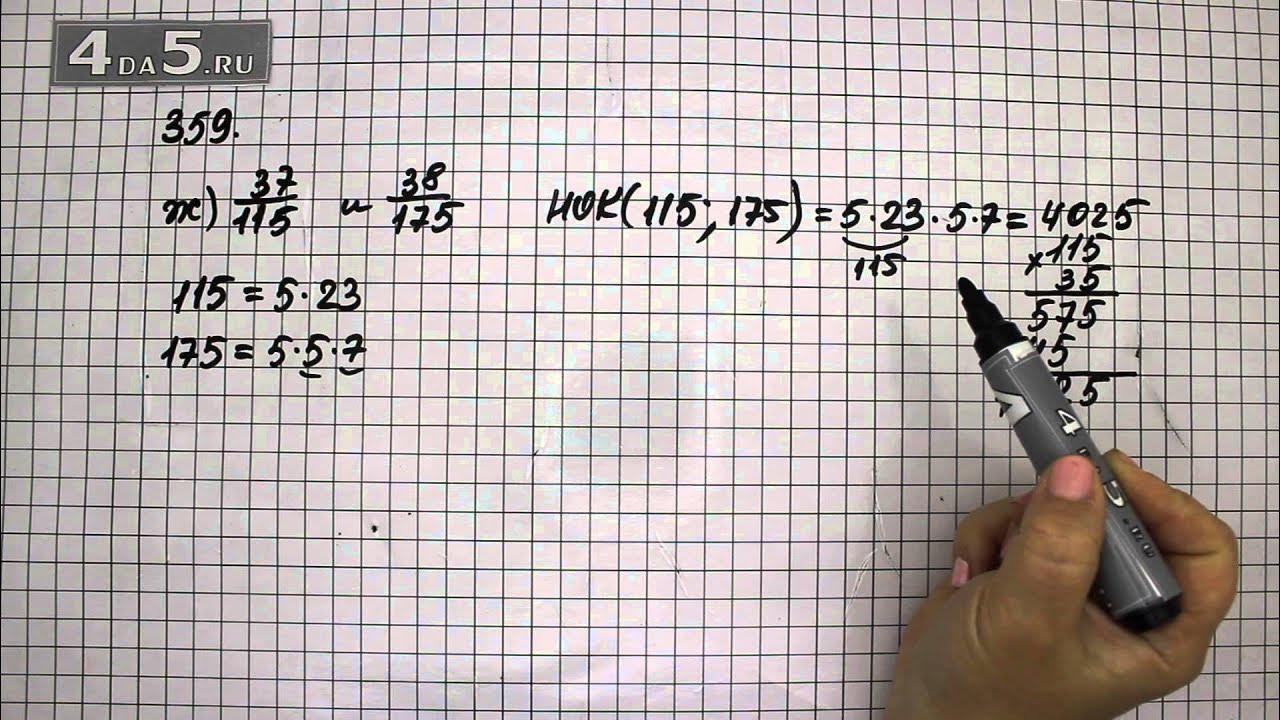 4DA5.RU
359.
ж) 37/115 и 38/175 НОК(115; 175) = 5·23·5·7 = 4025
115
115 = 5·23
175 = 5·5·7
×115
35
575